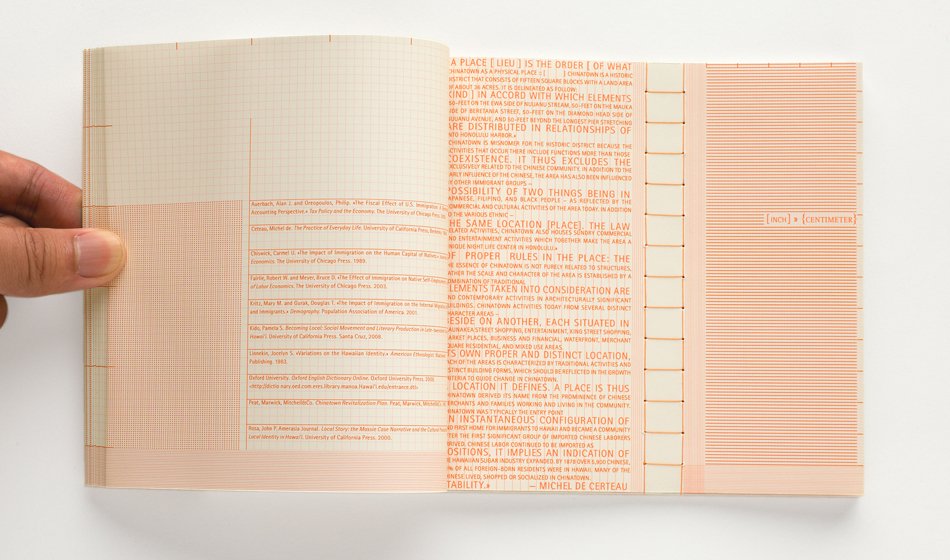 Auerbach, Alan J. and Oreopoulos, Philip. «The Fiscal Effect of U.S. Immigration: A
Accounting Perspective.» Tax Policy and the Economy. The University of Chicago Press.
Certeau, Michel de. The Practice of Everyday Life. University of California Press, Berkeley,
Chiswick, Carmel U. «The Impact of Immigration on the Human Capital of Natives.»
Economics. The University of Chicago Press. 1989.
Fairlie, Robert W. and Meyer, Bruce D. «The Effect of Immigration on Native Self-Employment
of Labor Economics. The University of Chicago Press. 2003.
Kritz, Mary M. and Gurak, Douglas T. «The Impact of Immigration on the Internal
and Immigrants.» Demography. Population Association of America. 2001.
Kido, Pamela S. Becoming Local: Social Movement and Literary Production in
Hawai'i. University of California Press. Santa Cruz, 2000.
Linnekin, Jocelyn S. «Variations on the Hawaiian Identity.» American Ethnologist.
Publishing. 1983.
Oxford University. Oxford English Dictionary Online. Oxford University Press, 2009.
<http://dictio nary.oed.com.eres.library.manoa.Hawai'i.edu/entrance.dtl>
Peat, Marwick, Mitchell&Co. Chinatown Revitalization Plan. Peat, Marwick,
Rosa, John P. Amerasia Journal. Local Story: the Massie Case Narrative and the Cultural
Local Identity in Hawai'i. University of California Press. 2000.
A PLACE [ LIEU ] IS THE ORDER [ OF WHAT
CHINATOWN AS A PHYSICAL PLACE :: [ ] CHINATOWN IS A HISTORIC
DISTRICT THAT CONSISTS OF FIFTEEN SQUARE BLOCKS WITH A LAND AREA
OF ABOUT 36 ACRES. IT IS DELINEATED AS FOLLOW:
KIND ] IN ACCORD WITH WHICH ELEMENTS
50-FEET ON THE EWA SIDE OF NUUANU STREAM, 50-FEET ON THE MAUKA
SIDE OF BERETANIA STREET, 50-FEET ON THE DIAMOND HEAD SIDE OF
NUUANU AVENUE, AND 50-FEET BEYOND THE LONGEST PIER STRETCHING
ARE DISTRIBUTED IN RELATIONSHIPS OF
INTO HONOLULU HARBOR.»
CHINATOWN IS MISNOMER FOR THE HISTORIC DISTRICT BECAUSE THE
ACTIVITIES THAT OCCUR THERE INCLUDE FUNCTIONS MORE THAN THOSE
COEXISTENCE. IT THUS EXCLUDES THE
EXCLUSIVELY RELATED TO THE CHINESE COMMUNITY. IN ADDITION TO THE
EARLY INFLUENCE OF THE CHINESE, THE AREA HAS ALSO BEEN INFLUENCED
BY OTHER IMMIGRANT GROUPS —
POSSIBILITY OF TWO THINGS BEING IN
JAPANESE, FILIPINO, AND BLACK PEOPLE – AS REFLECTED BY THE
COMMERCIAL AND CULTURAL ACTIVITIES OF THE AREA TODAY. IN ADDITION
TO THE VARIOUS ETHNIC –
THE SAME LOCATION [PLACE]. THE LAW
RELATED ACTIVITIES, CHINATOWN ALSO HOUSES SUNDRY COMMERCIAL
AND ENTERTAINMENT ACTIVITIES WHICH TOGETHER MAKE THE AREA A
UNIQUE NIGHT LIFE CENTER IN HONOLULU.»
OF PROPER RULES IN THE PLACE: THE
THE ESSENCE OF CHINATOWN IS NOT PURELY RELATED TO STRUCTURES,
RATHER THE SCALE AND CHARACTER OF THE AREA IS ESTABLISHED BY A
COMBINATION OF TRADITIONAL
ELEMENTS TAKEN INTO CONSIDERATION ARE
AND CONTEMPORARY ACTIVITIES IN ARCHITECTURALLY SIGNIFICANT
BUILDINGS. CHINATOWN ACTIVITIES TODAY FROM SEVERAL DISTINCT
CHARACTER AREAS –
BESIDE ON ANOTHER, EACH SITUATED IN
MAUNAKEA STREET SHOPPING, ENTERTAINMENT, KING STREET SHOPPING,
MARKET PLACES, BUSINESS AND FINANCIAL, WATERFRONT, MERCHANT
SQUARE RESIDENTIAL, AND MIXED USE AREAS.
ITS OWN PROPER AND DISTINCT LOCATION,
EACH OF THE AREAS IS CHARACTERIZED BY TRADITIONAL ACTIVITIES AND
DISTINCT BUILDING FORMS, WHICH SHOULD BE REFLECTED IN THE GROWTH
CRITERIA TO GUIDE CHANGE IN CHINATOWN.
LOCATION IT DEFINES. A PLACE IS THUS
CHINATOWN DERIVED ITS NAME FROM THE PROMINENCE OF CHINESE
MERCHANTS AND FAMILIES WORKING AND LIVING IN THE COMMUNITY.
CHINATOWN WAS TYPICALLY THE ENTRY POINT
AN INSTANTANEOUS CONFIGURATION OF
AND FIRST HOME FOR IMMIGRANTS TO HAWAII AND BECAME A COMMUNITY
AFTER THE FIRST SIGNIFICANT GROUP OF IMPORTED CHINESE LABORERS
ARRIVED. CHINESE LABOR CONTINUED TO BE IMPORTED AS
POSITIONS, IT IMPLIES AN INDICATION OF
THE HAWAIIAN SUGAR INDUSTRY EXPANDED. BY 1878 OVER 5,900 CHINESE,
% OF ALL FOREIGN-BORN RESIDENTS WERE IN HAWAII. MANY OF THE
CHINESE LIVED, SHOPPED OR SOCIALIZED IN CHINATOWN.
STABILITY.» — MICHEL DE CERTEAU
[INCH] » {CENTIMETER}